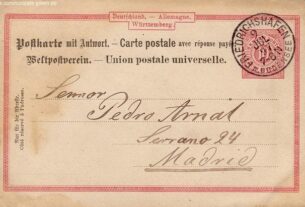 Deutschland. — Allemagne.
Württemberg.
Postkarte mit Antwort. - Carte postale avec réponse payée
Weltpostverein. — Union postale universelle.
FRIEDRICHSHAFEN
Nur für die Adresse.
Côté réservé à l'adresse.
Sennor
Pedro Arnál
Serrano 24
Madrid